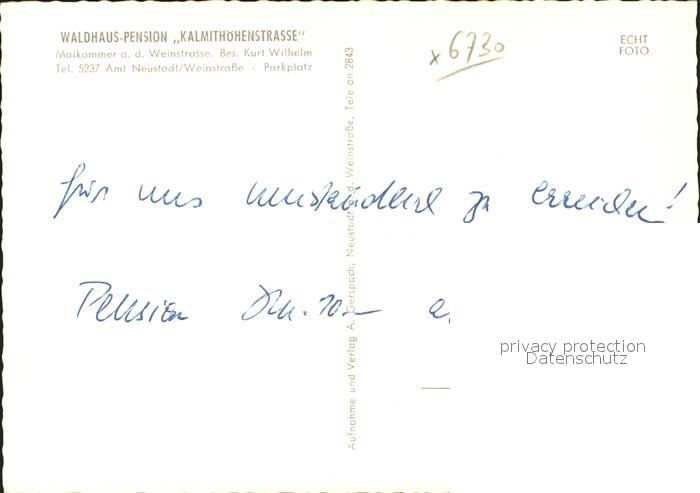 WALDHAUS-PENSION „KALMITHÖHENSTRASSE"
Maikammer a. d. Weinstrasse, Bes. Kurt Wilhelm
Tel. 5237 Amt Neustadt/Weinstraße - Parkplatz
x 6730
ECHT
FOTO
Aufnahme und Verlag A. Gerspach, Neustadt a. d. Weinstraße, Telefon 2843
für uns umständlich zu erreichen!
Pension
privacy protection
Datenschutz